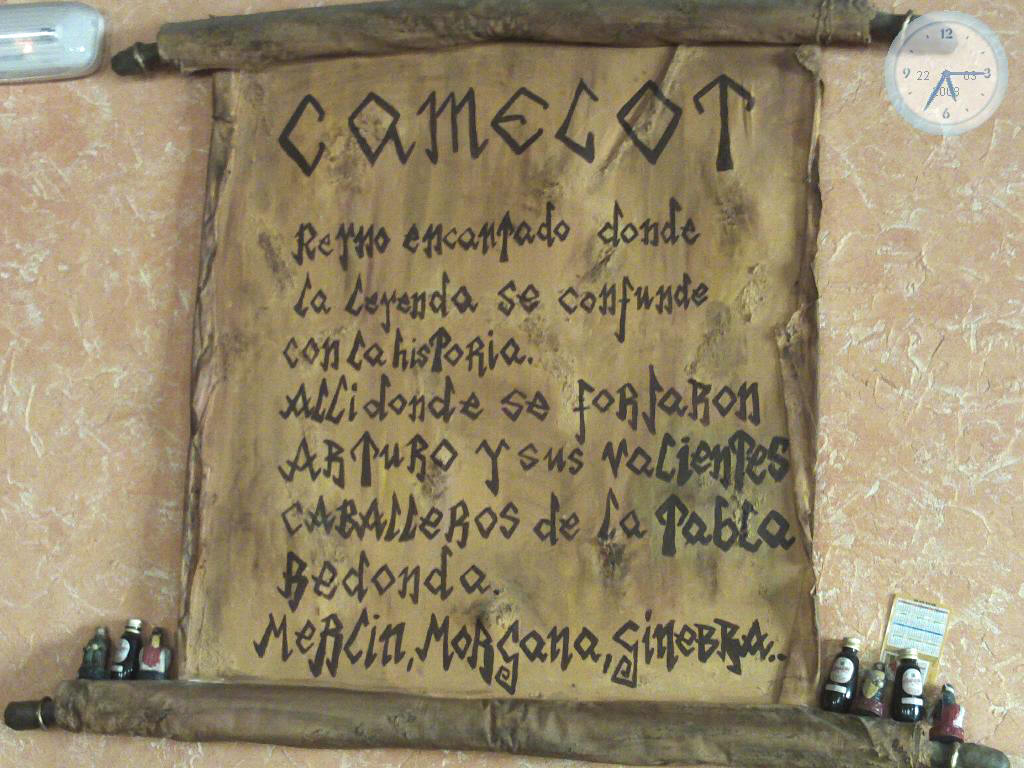 CAMELOT
Reyno encantado donde
la leyenda se confunde
con la hisToria.
Alli donde se forjaron
ARTuRO y sus valienTes
CABAlleROS de la Tabla
Redonda.
MeRlin, MoRgana, GineBRa..
12
9 22 03 3
2008
6